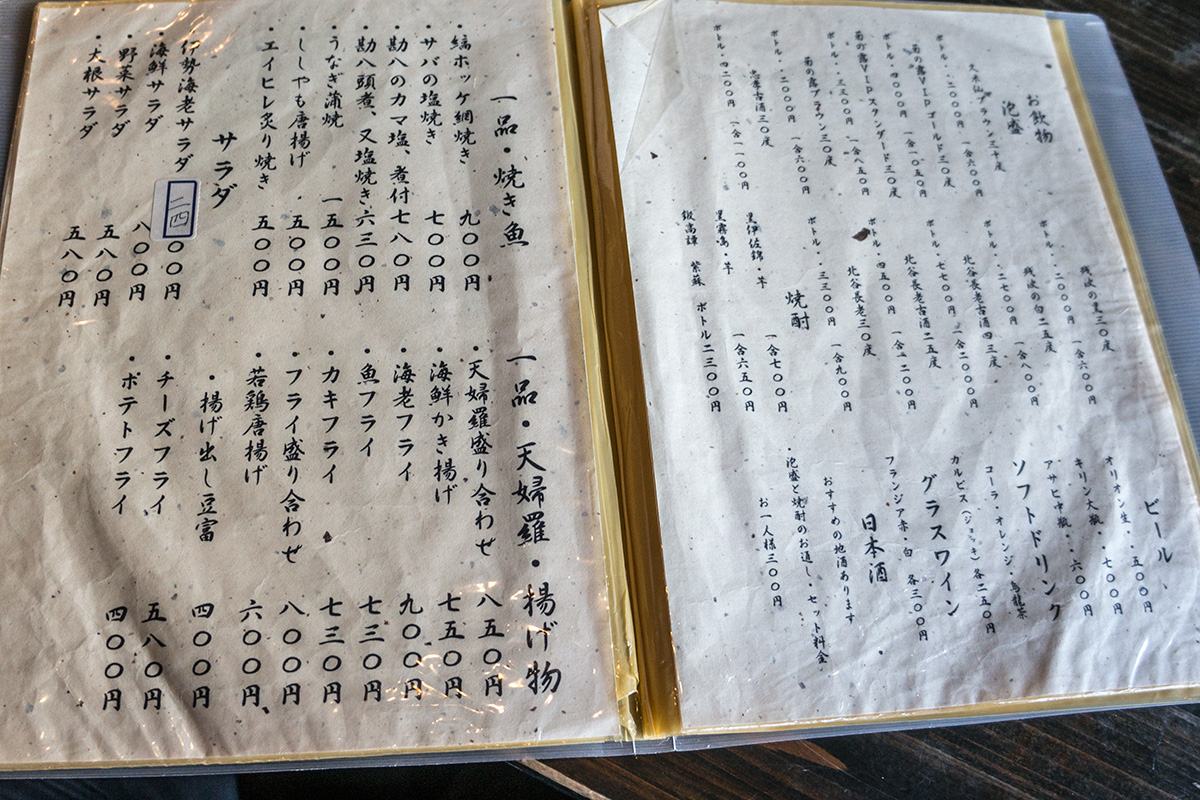 お飲物
泡盛
久米仙ブラウン三十度
ボトル・・二〇〇〇円 一合六〇〇円
菊の露VIPゴールド三〇度
ボトル・四〇〇〇円 一合一〇五〇円
菊の露VIPスタンダード三〇度
ボトル・・三三〇〇円 一合八五〇円
菊の露ブラウン三〇度
ボトル・・二〇〇〇円 一合六〇〇円
忠孝古酒三〇度
ボトル・四二〇〇円 一合一一〇〇円
残波の黒三〇度
ボトル・・二〇〇〇円 一合六〇〇円
残波の白二五度
ボトル・・二七〇〇円 一合八〇〇円
北谷長老古酒四三度
ボトル・・七七〇〇円 一合二〇〇〇円
北谷長老古酒二五度
ボトル・・四五〇〇円 一合一二〇〇円
北谷長老三〇度
ボトル・・三三〇〇円 一合九〇〇円
焼酎
黒伊佐錦・芋 一合七〇〇円
黒霧島・芋 一合六五〇円
鍛高譚 紫蘇 ボトル二三〇〇円
ビール
オリオン生・・五〇〇円
キリン大瓶・・七〇〇円
アサヒ中瓶・・六〇〇円
ソフトドリンク
コーラ・オレンジ・烏龍茶
カルピス(ジョッキ)各二五〇円
グラスワイン
フランジア赤・白 各三〇〇円
日本酒
おすすめの地酒あります
・泡盛と焼酎のお通し・セット料金
お一人様三〇〇円
一品・焼き魚
・縞ホッケ網焼き 九〇〇円
・サバの塩焼き 七〇〇円
・勘八のカマ塩、煮付 七八〇円
・勘八頭煮、又塩焼き 六三〇円
・うなぎ蒲焼 一五〇〇円
・ししゃも唐揚げ 五〇〇円
・エイヒレ炙り焼き 五〇〇円
サラダ
・伊勢海老サラダ 二四〇〇円
・海鮮サラダ 八〇〇円
・野菜サラダ 五八〇円
・大根サラダ 五八〇円
一品・天婦羅・揚げ物
・天婦羅盛り合わせ 八五〇円
・海鮮かき揚げ 七五〇円
・海老フライ 九〇〇円
・魚フライ 七三〇円
・カキフライ 七三〇円
・フライ盛り合わせ 八〇〇円
・若鶏唐揚げ 六〇〇円
・揚げ出し豆富 四〇〇円
・チーズフライ 五八〇円
・ポテトフライ 四〇〇円